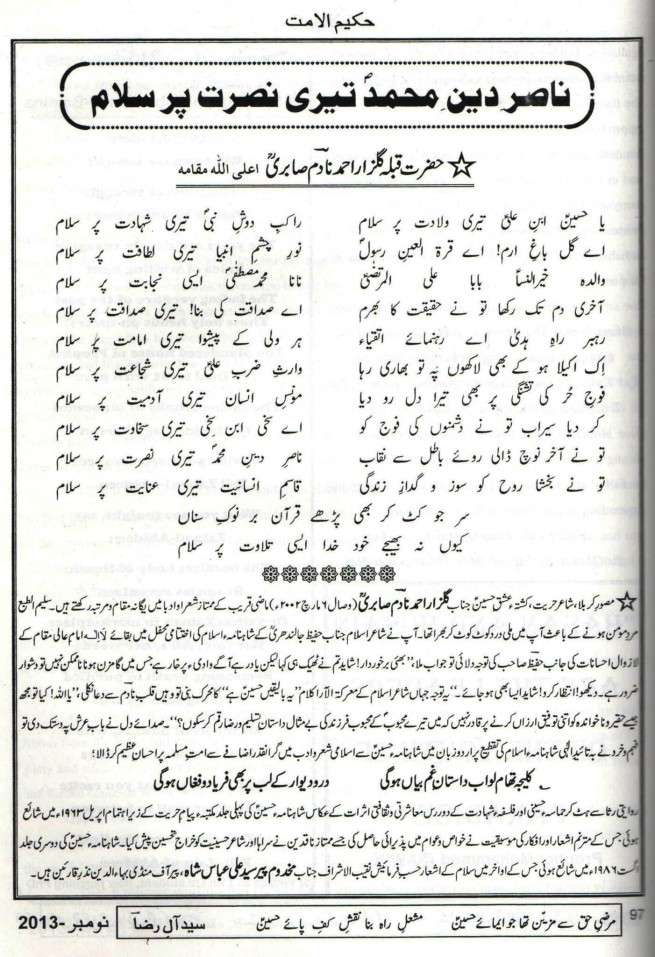 حکیم الامت
ناصرِ دینِ محمدؐ تیری نصرت پر سلام
☆ حضرت قبلہ گلزار احمد نادمؔ صابریؒ اعلی اللہ مقامہ
یا حسینؑ ابنِ علیؑ تیری ولادت پر سلام راکبِ دوشِ نبیؐ تیری شہادت پر سلام
اے گلِ باغِ ارم! اے قرۃ العینِ رسولؐ نورِ چشمِ انبیا تیری لطافت پر سلام
والدہ خیرالنساؑ بابا علی المرتضیٰؑ نانا محمد مصطفیٰؐ ایسی نجابت پر سلام
آخری دم تک رکھا تو نے حقیقت کا بھرم اے صداقت کی بنا! تیری صداقت پر سلام
رہبر راہِ ہدیٰ اے رہنمائے اتقیاء ہر ولی کے پیشوا تیری امامت پر سلام
اِک اکیلا ہو کے بھی لاکھوں پہ تو بھاری رہا وارثِ ضربِ علیؑ تیری شجاعت پر سلام
فوجِ حُر کی تشنگی پر بھی ترا دل رو دیا مونسِ انسان تیری آدمیت پر سلام
کر دیا سیراب تو نے دشمنوں کی فوج کو اے سخی ابنِ سخی تیری سخاوت پر سلام
تو نے آخر نوچ ڈالی روئے باطل سے نقاب ناصرِ دینِ محمدؐ تیری نصرت پر سلام
تو نے بخشا روح کو سوز و گدازِ زندگی قاسمِ انسانیت تیری عنایت پر سلام
سر جو کٹ کر بھی پڑھے قرآن بر نوکِ سناں
کیوں نہ بھیجے خود خدا ایسی تلاوت پر سلام
☆ مصورِ کربلا، شاعرِ حریت، کشتۂ عشقِ حسینؑ جناب گلزار احمد نادمؔ صابریؒ (وصال ۶ مارچ ۲۰۰۲ء) ماضی قریب کے ممتاز شعراو ادبا میں یگانہ مقام و مرتبہ رکھتے ہیں۔ سلیم الطبع
مردِ مومن ہونے کے باعث آپ میں ملی درد کوٹ کوٹ کر بھرا تھا۔ آپ نے شاعرِ اسلام جناب حفیظ جالندھری کے شاہنامۂ اسلام کی اختتامی محفل میں بقائے لاالہ امامِ عالی مقام کے
لازوال احسانات کی جانب حفیظ صاحب کی توجہ دلائی تو جواب ملا، "بھئی برخوردار! شاید تم نے ٹھیک ہی کہا لیکن یاد رہے آگے وادیٔ پرخار ہے جس میں گامزن ہونا ناممکن نہیں تو دشوار
ضرور ہے۔ دیکھو! انتظار کرو! شاید ایسا بھی ہو جائے۔" یہ توجہ جہاں شاعرِ اسلام کے معرکۃ الآرا کلام "یہ بالیقیں حسینؑ ہے" کا محرک بنی تو وہیں قلبِ نادم سے دعا نکلی، "یا اللہ! کیا تو مجھ
جیسے حقیر و نا خواندہ کو اتنی توفیق ارزاں کرنے پر قادر نہیں کہ میں تیرے محبوبؐ کے محبوب فرزند کی بے مثال داستانِ تسلیم و رضا رقم کر سکوں؟" صدائے دل نے بابِ عرش پہ دستک دی تو
فہم و خرد نے بتائیدِ الٰہی شاہنامۂ اسلام کی تقطیع پر اردو زبان میں شاہنامۂ حسینؑ سے اسلامی شعر و ادب میں گرانقدر اضافے سے امتِ مسلمہ پر احسانِ عظیم کر ڈالا؛
کلیجہ تھام لو اب داستانِ غم بیاں ہوگی در و دیوار کے لب پر بھی فریاد و فغاں ہوگی
روایتی رثا سے ہٹ کر حماسۂ حسینی اور فلسفۂ شہادت کے دوررس معاشرتی و ثقافتی اثرات کے عکاس شاہنامۂ حسینؑ کی پہلی جلد مکتبہ پیامِ تربت کے زیرِ اہتمام اپریل ۱۹۶۳ء میں شائع
ہوئی جس کے مترنم اشعار اور افکار کی موسیقیت نے خواص و عوام میں پذیرائی حاصل کی جسے ممتاز ناقدین نے سراہا اور شاعرِ حسینیت کو خراجِ تحسین پیش کیا۔ شاہنامۂ حسینؑ کی دوسری جلد
اگست ۱۹۸۶ء میں شائع ہوئی جس کے اواخر میں سلام کے اشعار حسبِ فرمائش نقیب الاشراف جناب مخدوم پیر سید علی عباس شاہ، پیر آف منڈی بہاءالدین نذرِ قارئین ہیں۔
97 مرضیِ حق سے مزیّن تھا جو ایمائے حسینؑ مشعلِ راہ بنا نقشِ کفِ پائے حسینؑ سید آلِ رضاؔ نومبر-2013